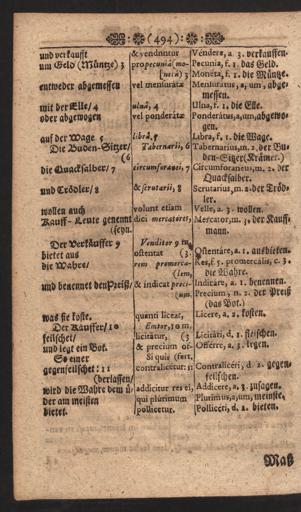 (494)
und verkaufft & vendnntur Véndere, a. 3. verkauffen.
um Geld (Müntze) 3 pro pecuniâ (mo- Pecunia, f. 1. das Geld.
netâ) 3 Monéta, f. 1. die Müntze.
entweder abgemessen vel mensurata Mensuratus, a, um, abge-
messen.
mit der Elle/ 4 ulnâ, 4 Ulna, f. 1. die Elle.
oder abgewogen vel ponderata Ponderátus, a, um, abgewo-
gen.
auf der Wage 5 librâ, 5 Libra, f. 1. die Wage.
Die Buden-Sitzer/ Tabernarii, 6 Tabernarius, m. 2. der Bu-
(6 den-Sitzer (Krämer.)
die Quacksalber/ 7 circumforanei, 7 Circumforaneus, m. 2. der
Quacksalber.
und Trödler/ 8 & scrutarii, 8 Scrutarius, m. 2. der Tröd-
ler.
wollen auch volunt etiam Velle, a. 3. wollen.
Kauff-Leute genennt dici mercatores, Mercator, m. 3. der Kauff-
(seyn. mann.
Der Verkäuffer 9 Venditor 9
bietet aus ostentat Ostentáre, a. 1. ausbieten.
die Wahre/ rem promerca- Res, f. 5. promercalis, c. 3.
(lem, die Wahre.
und benennet den Preiß/ & indicat preci- Indicáre, a. 1. benennen.
(um. Precium, n. 2. der Preiß
(das Bot.)
was sie koste. quanti liceat, Licere, a. 2. kosten.
Der Käuffer/ 10 Emtor, 10 m.
feilschet/ licitátur, (3 Licitári, d. 1. feilschen.
und legt ein Bot. & precium of- Offérre, a. 3. legen.
So einer Si quis (fert.
gegenfeilschet: 11 contraliceátur: 11 Contraliceri, d. 2. gegen-
(verlassen/ feilschen.
wird die Wahre dem ü- addicitur res ei, Addícere, a. 3. zusagen.
der am meisten qui plurimum Plurimus, a, um, meiniste.
bietet. pollicetur. Polliceri, d. 2. bieten.
Maß